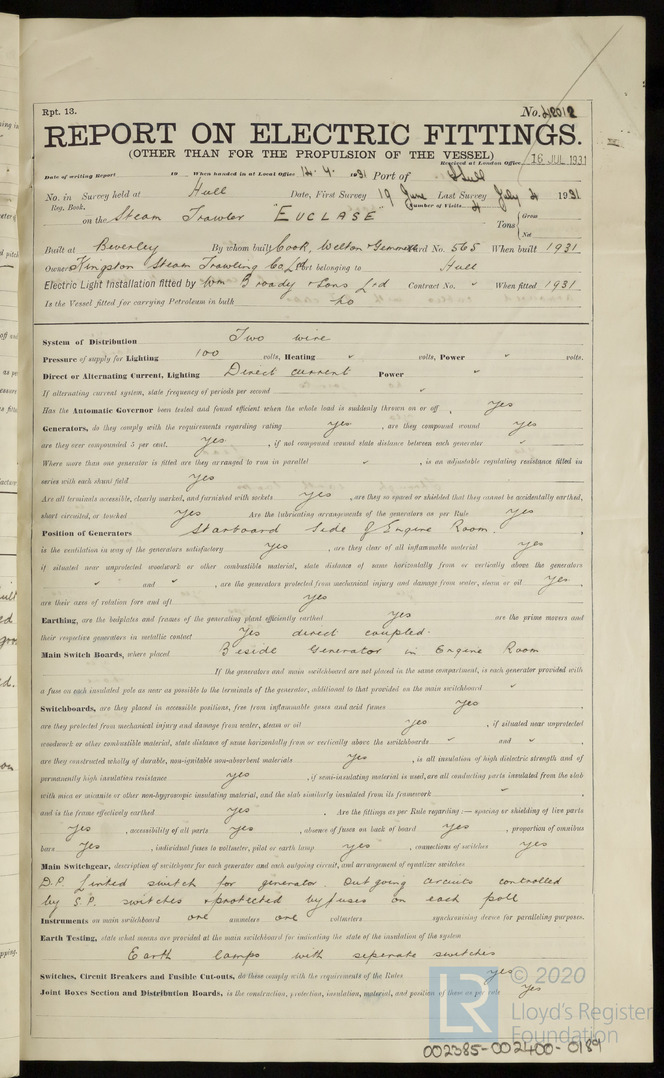 Rpt. 13.
No. 42012
REPORT ON ELECTRIC FITTINGS.
(OTHER THAN FOR THE PROPULSION OF THE VESSEL)
Received at London Office 16 JUL 1931
Date of writing Report 19 When handed in at Local Office 14. 4. 1931 Port of Hull
No. in Survey held at Hull Date, First Survey 19 June Last Survey July 4 1931
Reg. Book. Number of Visits 4
on the Steam Trawler "EUCLASE" Tons { Gross
Net
Built at Beverley By whom built Cook, Welton & Gemmell Yard No. 565 When built 1931
Owners Kingston Steam Trawling Co Ltd Port belonging to Hull
Electric Light Installation fitted by Wm Broady & Sons Ltd Contract No. " When fitted 1931
Is the Vessel fitted for carrying Petroleum in bulk no
System of Distribution Two wire
Pressure of supply for Lighting 100 volts, Heating " volts, Power " volts.
Direct or Alternating Current, Lighting Direct current Power "
If alternating current system, state frequency of periods per second "
Has the Automatic Governor been tested and found efficient when the whole load is suddenly thrown on or off , yes
Generators, do they comply with the requirements regarding rating yes , are they compound wound yes
are they over compounded 5 per cent. yes , if not compound wound state distance between each generator "
Where more than one generator is fitted are they arranged to run in parallel " , is an adjustable regulating resistance fitted in
series with each shunt field yes
Are all terminals accessible, clearly marked, and furnished with sockets yes , are they so spaced or shielded that they cannot be accidentally earthed,
short circuited, or touched yes Are the lubricating arrangements of the generators as per Rule yes
Position of Generators Starboard Side of Engine Room.
is the ventilation in way of the generators satisfactory yes , are they clear of all inflammable material yes
if situated near unprotected woodwork or other combustible material, state distance of same horizontally from or vertically above the generators
" and " , are the generators protected from mechanical injury and damage from water, steam or oil yes
are their axes of rotation fore and aft yes
Earthing, are the bedplates and frames of the generating plant efficiently earthed yes are the prime movers and
their respective generators in metallic contact yes direct coupled.
Main Switch Boards, where placed Beside Generator in Engine Room
If the generators and main switchboard are not placed in the same compartment, is each generator provided with
a fuse on each insulated pole as near as possible to the terminals of the generator, additional to that provided on the main switchboard "
Switchboards, are they placed in accessible positions, free from inflammable gases and acid fumes yes
are they protected from mechanical injury and damage from water, steam or oil yes , if situated near unprotected
woodwork or other combustible material, state distance of same horizontally from or vertically above the switchboards " and "
are they constructed wholly of durable, non-ignitable non-absorbent materials yes , is all insulation of high dielectric strength and of
permanently high insulation resistance yes , if semi-insulating material is used, are all conducting parts insulated from the slab
with mica or micanite or other non-hygroscopic insulating material, and the slab similarly insulated from its framework "
and is the frame effectively earthed yes . Are the fittings as per Rule regarding:— spacing or shielding of live parts
yes , accessibility of all parts yes , absence of fuses on back of board yes , proportion of omnibus
bars yes , individual fuses to voltmeter, pilot or earth lamp yes , connections of switches yes
Main Switchgear, description of switchgear for each generator and each outgoing circuit, and arrangement of equalizer switches
D.P. Linked switch for generator. Outgoing circuits controlled
by S.P. switches & protected by fuses on each pole
Instruments on main switchboard one ammeters one voltmeters synchronising device for paralleling purposes.
Earth Testing, state what means are provided at the main switchboard for indicating the state of the insulation of the system
Earth lamps with seperate switches
Switches, Circuit Breakers and Fusible Cut-outs, do these comply with the requirements of the Rules yes
Joint Boxes Section and Distribution Boards, is the construction, protection, insulation, material, and position of these as per rule yes
LR
© 2020
Lloyd's Register
Foundation
002385-002400-0189